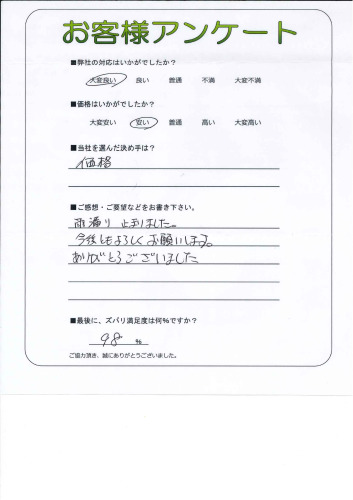 お客様アンケート
■弊社の対応はいかがでしたか?
大変良い 良い 普通 不満 大変不満
■価格はいかがでしたか?
大変安い 安い 普通 高い 大変高い
■当社を選んだ決め手は?
価格
■ご感想・ご要望などをお書き下さい。
雨漏り止まりました。
今後ともよろしくお願いします。
ありがとうございました
■最後に、ズバリ満足度は何%ですか?
98 %
ご協力頂き、誠にありがとうございました。